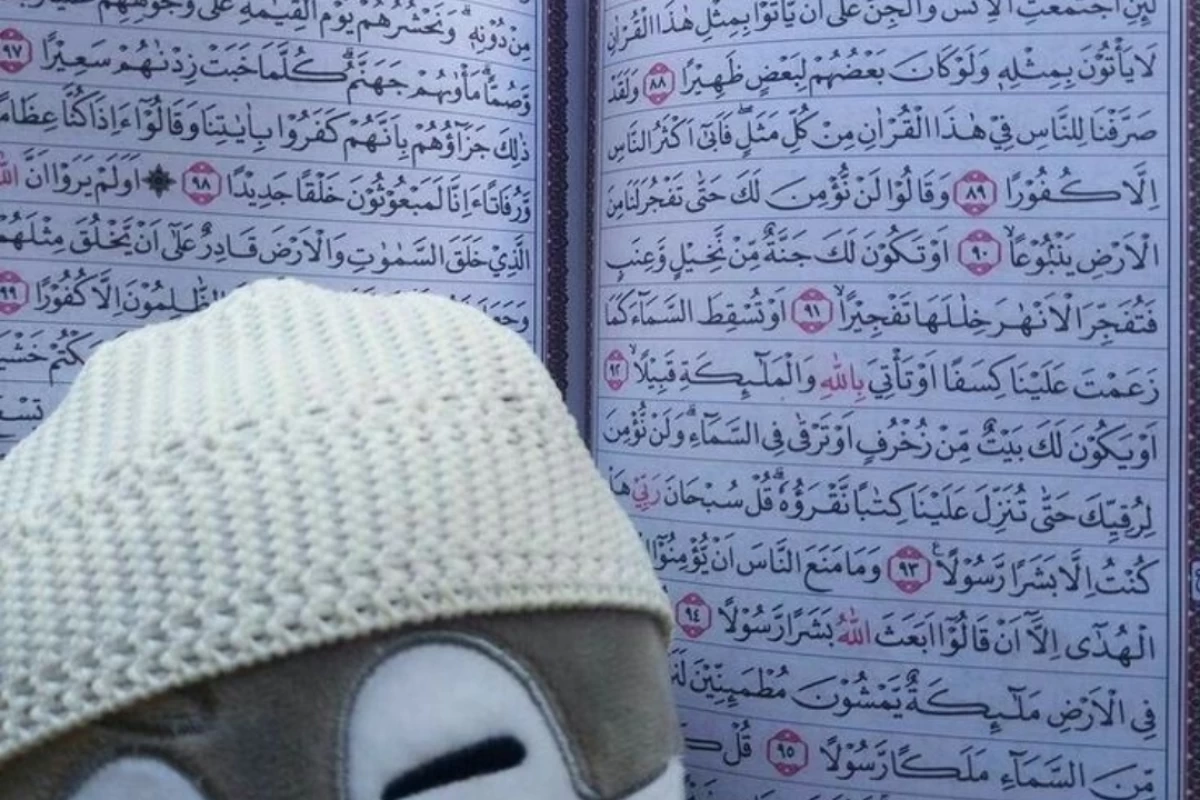 لَئِنِ اجْتَمَعَتِ الْاِنْسُ وَالْجِنُّ عَلٰٓى اَنْ يَّأْتُوْا بِمِثْلِ هٰذَا الْقُرْاٰنِ
لَا يَأْتُوْنَ بِمِثْلِهٖ وَلَوْ كَانَ بَعْضُهُمْ لِبَعْضٍ ظَهِيْرًا ٨٨ وَلَقَدْ
صَرَّفْنَا لِلنَّاسِ فِيْ هٰذَا الْقُرْاٰنِ مِنْ كُلِّ مَثَلٍۖ فَاَبٰىٓ اَكْثَرُ النَّاسِ
اِلَّا كُفُوْرًا ٨٩ وَقَالُوْا لَنْ نُّؤْمِنَ لَكَ حَتّٰى تَفْجُرَ لَنَا مِنَ
الْاَرْضِ يَنْۢبُوْعًاۙ ٩٠ اَوْ تَكُوْنَ لَكَ جَنَّةٌ مِّنْ نَّخِيْلٍ وَّعِنَبٍ
فَتُفَجِّرَ الْاَنْهٰرَ خِلٰلَهَا تَفْجِيْرًاۙ ٩١ اَوْ تُسْقِطَ السَّمَاۤءَ كَمَا
زَعَمْتَ عَلَيْنَا كِسَفًا اَوْ تَأْتِيَ بِاللّٰهِ وَالْمَلٰۤىِٕكَةِ قَبِيْلًاۙ ٩٢
اَوْ يَكُوْنَ لَكَ بَيْتٌ مِّنْ زُخْرُفٍ اَوْ تَرْقٰى فِى السَّمَاۤءِۗ وَلَنْ نُّؤْمِنَ
لِرُقِيِّكَ حَتّٰى تُنَزِّلَ عَلَيْنَا كِتٰبًا نَّقْرَؤُهٗۗ قُلْ سُبْحَانَ رَبِّيْ هَلْ
كُنْتُ اِلَّا بَشَرًا رَّسُوْلًا ࣖ ٩٣ وَمَا مَنَعَ النَّاسَ اَنْ يُّؤْمِنُوْٓا
الْهُدٰٓى اِلَّآ اَنْ قَالُوْٓا اَبَعَثَ اللّٰهُ بَشَرًا رَّسُوْلًا ٩٤
فِى الْاَرْضِ مَلٰۤىِٕكَةٌ يَّمْشُوْنَ مُطْمَىِٕنِّيْنَ
مِّنَ السَّمَاۤءِ مَلَكًا رَّسُوْلًا ٩٥ قُلْ
مِنْ دُوْنِهٖۗ وَنَحْشُرُهُمْ يَوْمَ الْقِيٰمَةِ عَلٰى وُجُوْهِهِمْ
وَّصُمًّاۗ مَأْوٰىهُمْ جَهَنَّمُۗ كُلَّمَا خَبَتْ زِدْنٰهُمْ سَعِيْرًا ٩٧
ذٰلِكَ جَزَاۤؤُهُمْ بِاَنَّهُمْ كَفَرُوْا بِاٰيٰتِنَا وَقَالُوْٓا ءَاِذَا كُنَّا عِظَامًا
وَّرُفَاتًا ءَاِنَّا لَمَبْعُوْثُوْنَ خَلْقًا جَدِيْدًا ٩٨ ۞ اَوَلَمْ يَرَوْا اَنَّ اللّٰهَ
الَّذِيْ خَلَقَ السَّمٰوٰتِ وَالْاَرْضَ قَادِرٌ عَلٰٓى اَنْ يَّخْلُقَ مِثْلَهُمْ
وَجَعَلَ الظّٰلِمُوْنَ اِلَّا كُفُوْرًا ٩٩